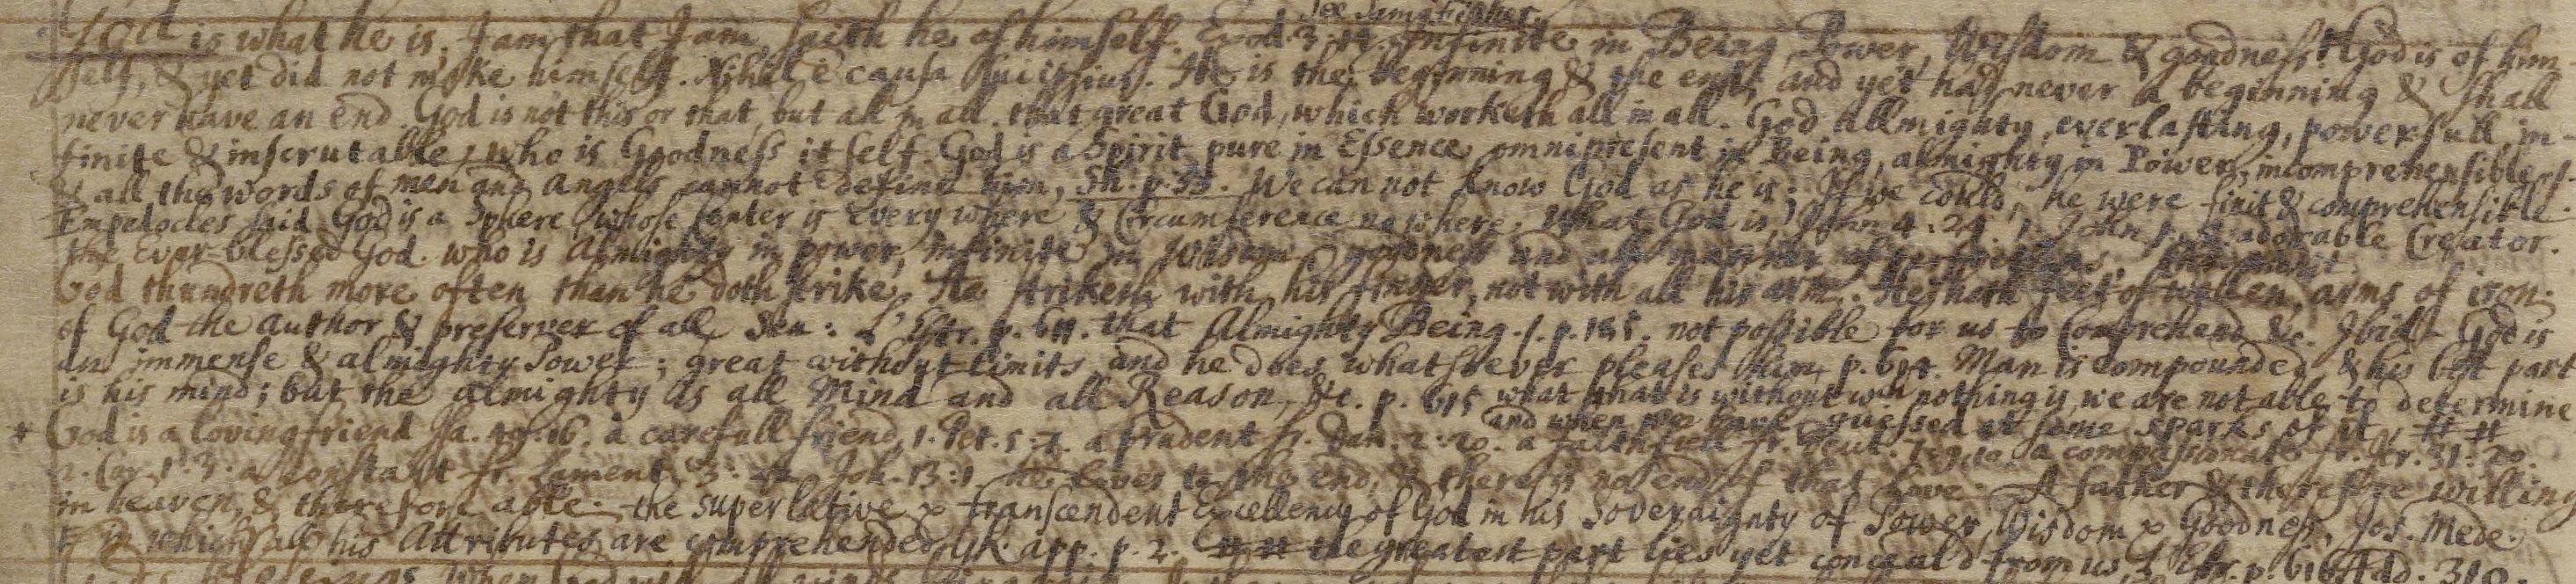 See Jam. Fisher.
God is what he is. I am that I am, saith he of himself. Exod. 3. 14. infinite in Being, Power, Wisdom & goodness. God is of him-
self, & yet did not make himself. Nihil e causa sui ipsius. He is the beginning & the end, and yet had never a beginning & shall
never have an end. God is not this or that, but all in all. that great God, which worketh all in all. God allmighty, everlasting, powerfull, in
finite & inscrutable, who is Goodness it self. God is a Spirit pure in Essence, omnipresent in Being, almighty in Power, incomprehensible
& all the words of men and angels cannot define him, Sh. p. 33. We can not know God as he is; If we could, he were finit & comprehensible
Empedocles said God is a Sphere, whose Center is every where & Circumference no where. What God is, John 4. 24. 1. John adorable Creator.
the Ever-blessed God. who is Almighty in power, infinite in Wisdom goodness and all manner of
God thundreth more often than he doth strike. He striketh with his finger, not with all his arm. He hath feet of wollen, arms of iron.
of God the author & preserver of all, Sen: L'Estr. p. 611. that Almighty Being. p. 185. not possible for us to Comprehend &c. Ibid. God is
an immense & almighty Power; great without limits, and he does whatsoever pleases him, p. 614. Man is compounded & his best part
is his mind; but the almighty is all Mind and all Reason, &c. p. 615 what that is without wch nothing is, we are not able to determine
and when we have guessed at some sparks of it,
God is a loving friend Isa. 49. 16. a carefull friend, 1. Pet. 5. 7. a prudent fr. Dan. 2. 20. a faithfull fr. Deut. 7. 9, 10. a compassionate fr. Jer. 31. 20.
2. Cor. 1. 3. a constant fr. Lament. 3: Joh. 13:1 he loves to the end, & there is no end of that Love. A father & therefore willing
in heaven, & therefore able. the superlative & transcendent Excellency of God in his Soveraignty of Power, Wisdom & Goodness, Jos. Mede.
in which all his Attributes are comprehended, app. p. 2. the greatest part lies yet conceal'd from us, L'Estr. p. 616